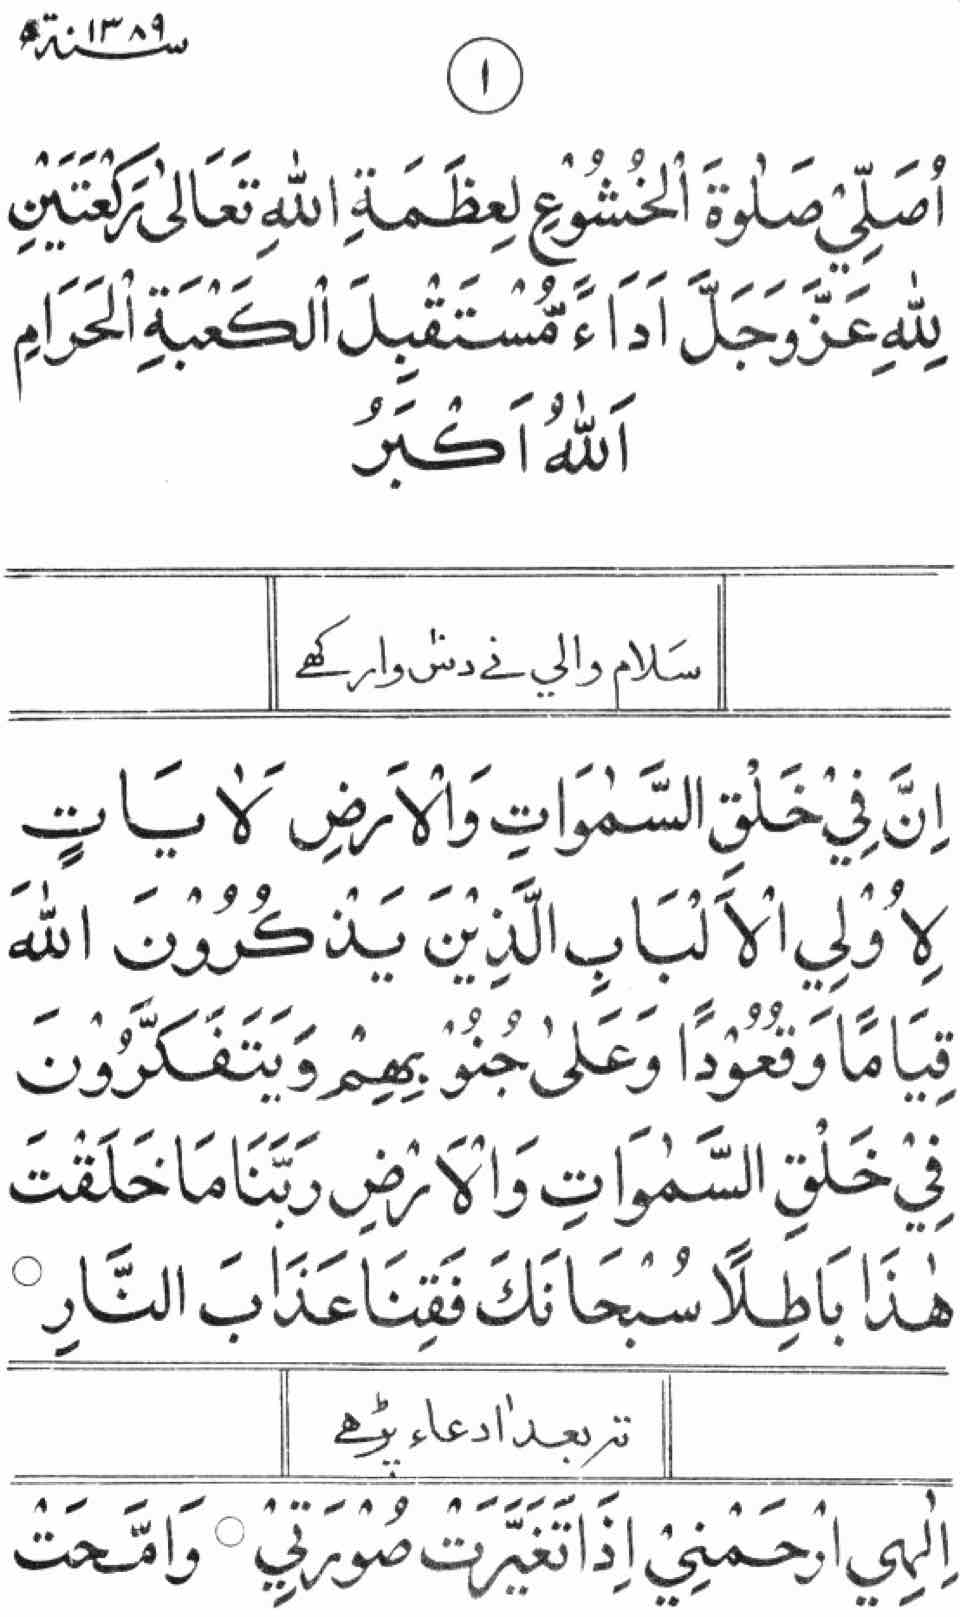 سنة ١٣٨٩ھ
١
اُصَلِّيْ صَلٰوةَ الْخُشُوْعِ لِعِظَمَةِ اللهِ تَعَالىٰ رَكْعَتَيْنِ
لِلّٰهِ عَزَّ وَجَلَّ اَدَاءً مُّسْتَقْبِلَ الْكَعْبَةِ الْحَرَامِ
اَللهُ اَكْبَرُ
سَلام والي نے دسْ وار كهے
اِنَّ فِيْ خَلْقِ السَّمٰوَاتِ وَالْاَرضِ لَاٰ يَاتٍ
لِاُوْلِي الْاَلْبَابِ الَّذِيْنَ يَذْكُرُوْنَ اللهَ
قِيَامًا وَقُعُوْدًا وَعَلىٰ جُنُوْبِهِمْ وَيَتَفَكَّرُوْنَ
فِيْ خَلْقِ السَّمٰوَاتِ وَالْاَرْضِ رَبَّنَا مَا خَلَقْتَ
هٰذَا بَاطِلًا سُبْحَانَكَ فَقِنَا عَذَابَ النَّارِ ○
تر بعد اٰ دعاء پڑهے
اِلٰهِي ارْحَمْنِيْ اِذَا تَغَيَّرَتْ صُوْرَتِيْ ○ وَامَّحَتْ